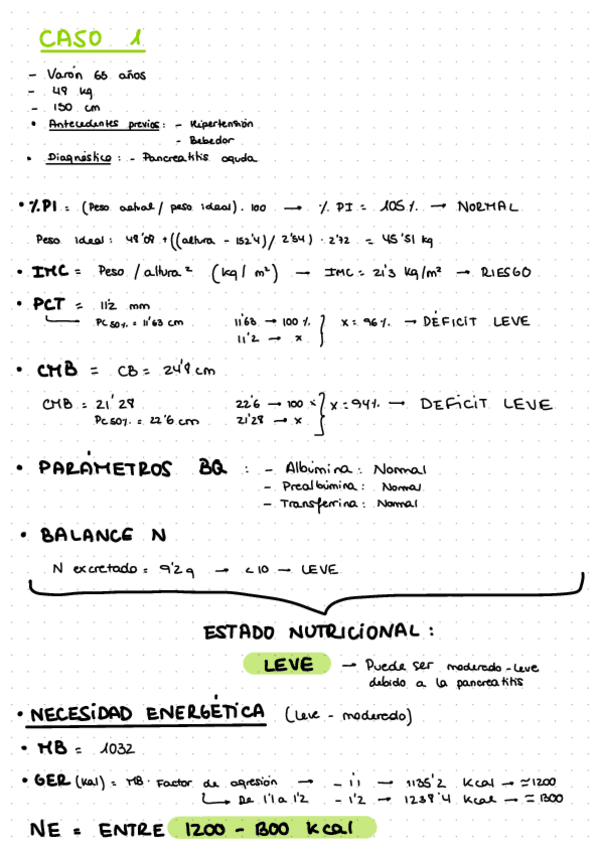 CASO 1
- Varón 65 años
- 49 kg
- 150 cm
• Antecedentes previos: - Hipertensión
- Bebedor
• Diagnóstico: - Pancreatitis aguda
• %PI = (Peso actual / peso ideal) · 100 → % PI = 105% → NORMAL
Peso ideal: 48'08 + ((altura - 152'4) / 2'54) · 2'72 = 45'51 kg
• IMC = Peso / altura² (kg / m²) → IMC = 21'3 kg/m² → RIESGO
• PCT = 11'2 mm
PC50% = 11'63 cm 11'63 → 100% } x = 96% → DÉFICIT LEVE
11'2 → x
• CMB = CB = 24'8 cm
CMB = 21'28 22'6 → 100 } x = 94% → DEFICIT LEVE
PC50% = 22'6 cm 21'28 → x
• PARÁMETROS BQ : - Albúmina: Normal
- Prealbúmina: Normal
- Transferrina: Normal
• BALANCE N
N excretado = 9'2 g → < 10 → LEVE
ESTADO NUTRICIONAL:
LEVE → Puede ser moderado-leve
debido a la pancreatitis
• NECESIDAD ENERGÉTICA (leve - moderado)
• MB = 1032
• GER (kcal) = MB · Factor de agresión → - 1'1 → 1135'2 kcal → ≃ 1200
↳ De 1'1 a 1'2 - 1'2 → 1238'4 kcal → ≃ 1300
NE = ENTRE 1200 - 1300 kcal